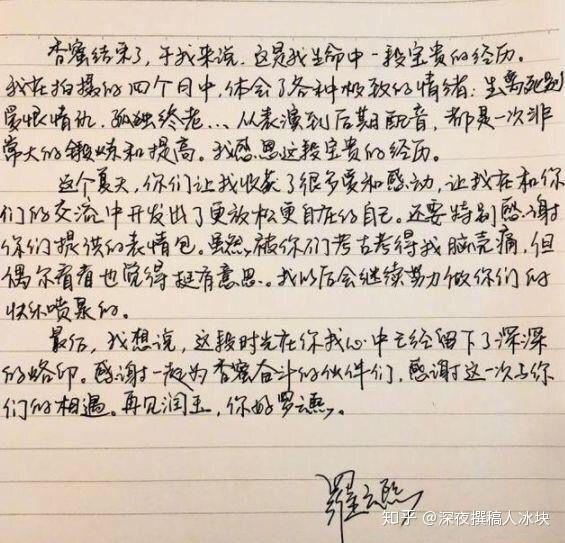 香蜜结束了，于我来说，这是我生命中一段宝贵的经历。
我在拍摄的四个月中，体会了各种极致的情绪：生离死别
爱恨情仇，孤独终老... 从表演到后期配音，都是一次非
常大的锻炼和提高。我感恩这段宝贵的经历。
这个夏天，你们让我收获了很多爱和感动，让我在和你
们的交流中开发出了更放松更自在的自己。还要特别感谢
你们提供的表情包。虽然被你们考古考得我脑壳痛，但
偶尔看看也觉得挺有意思。我以后会继续努力做你们的
快乐喷泉的。
最后，我想说，这段时光在你我心中已经留下了深深
的烙印。感谢一起为香蜜奋斗的伙伴们，感谢这一次与你
们的相遇。再见润玉，你好罗云熙。
羅云熙
知乎 @深夜撰稿人冰块